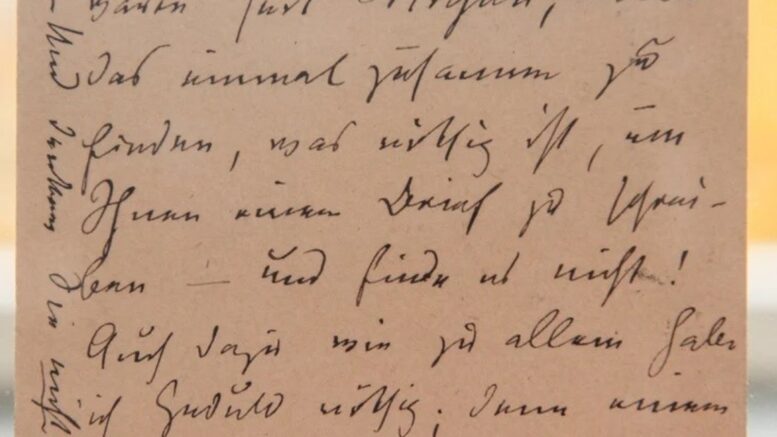 das einmal zusammen zu
finden, was nöthig ist, um
Ihnen einen Brief zu schrei-
ben — und finde es nicht!
Auch dazu wie zu allem habe
ich Geduld nöthig; denn einen
Und
Sie nicht